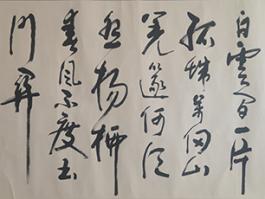 白雲間一片
孤城萬仞山
羌篴何須
怨楊柳
春風不度玉
門關